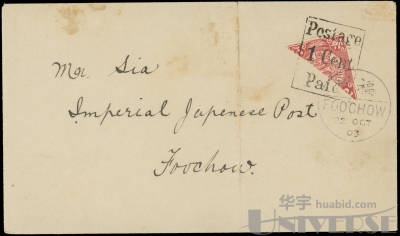 Postage
1 Cent
Paid
FOOCHOW
22 OCT
03
Mr. Sia
Imperial Japenese Post
Foochow.
华宇 huabid.com
UNIVERSE